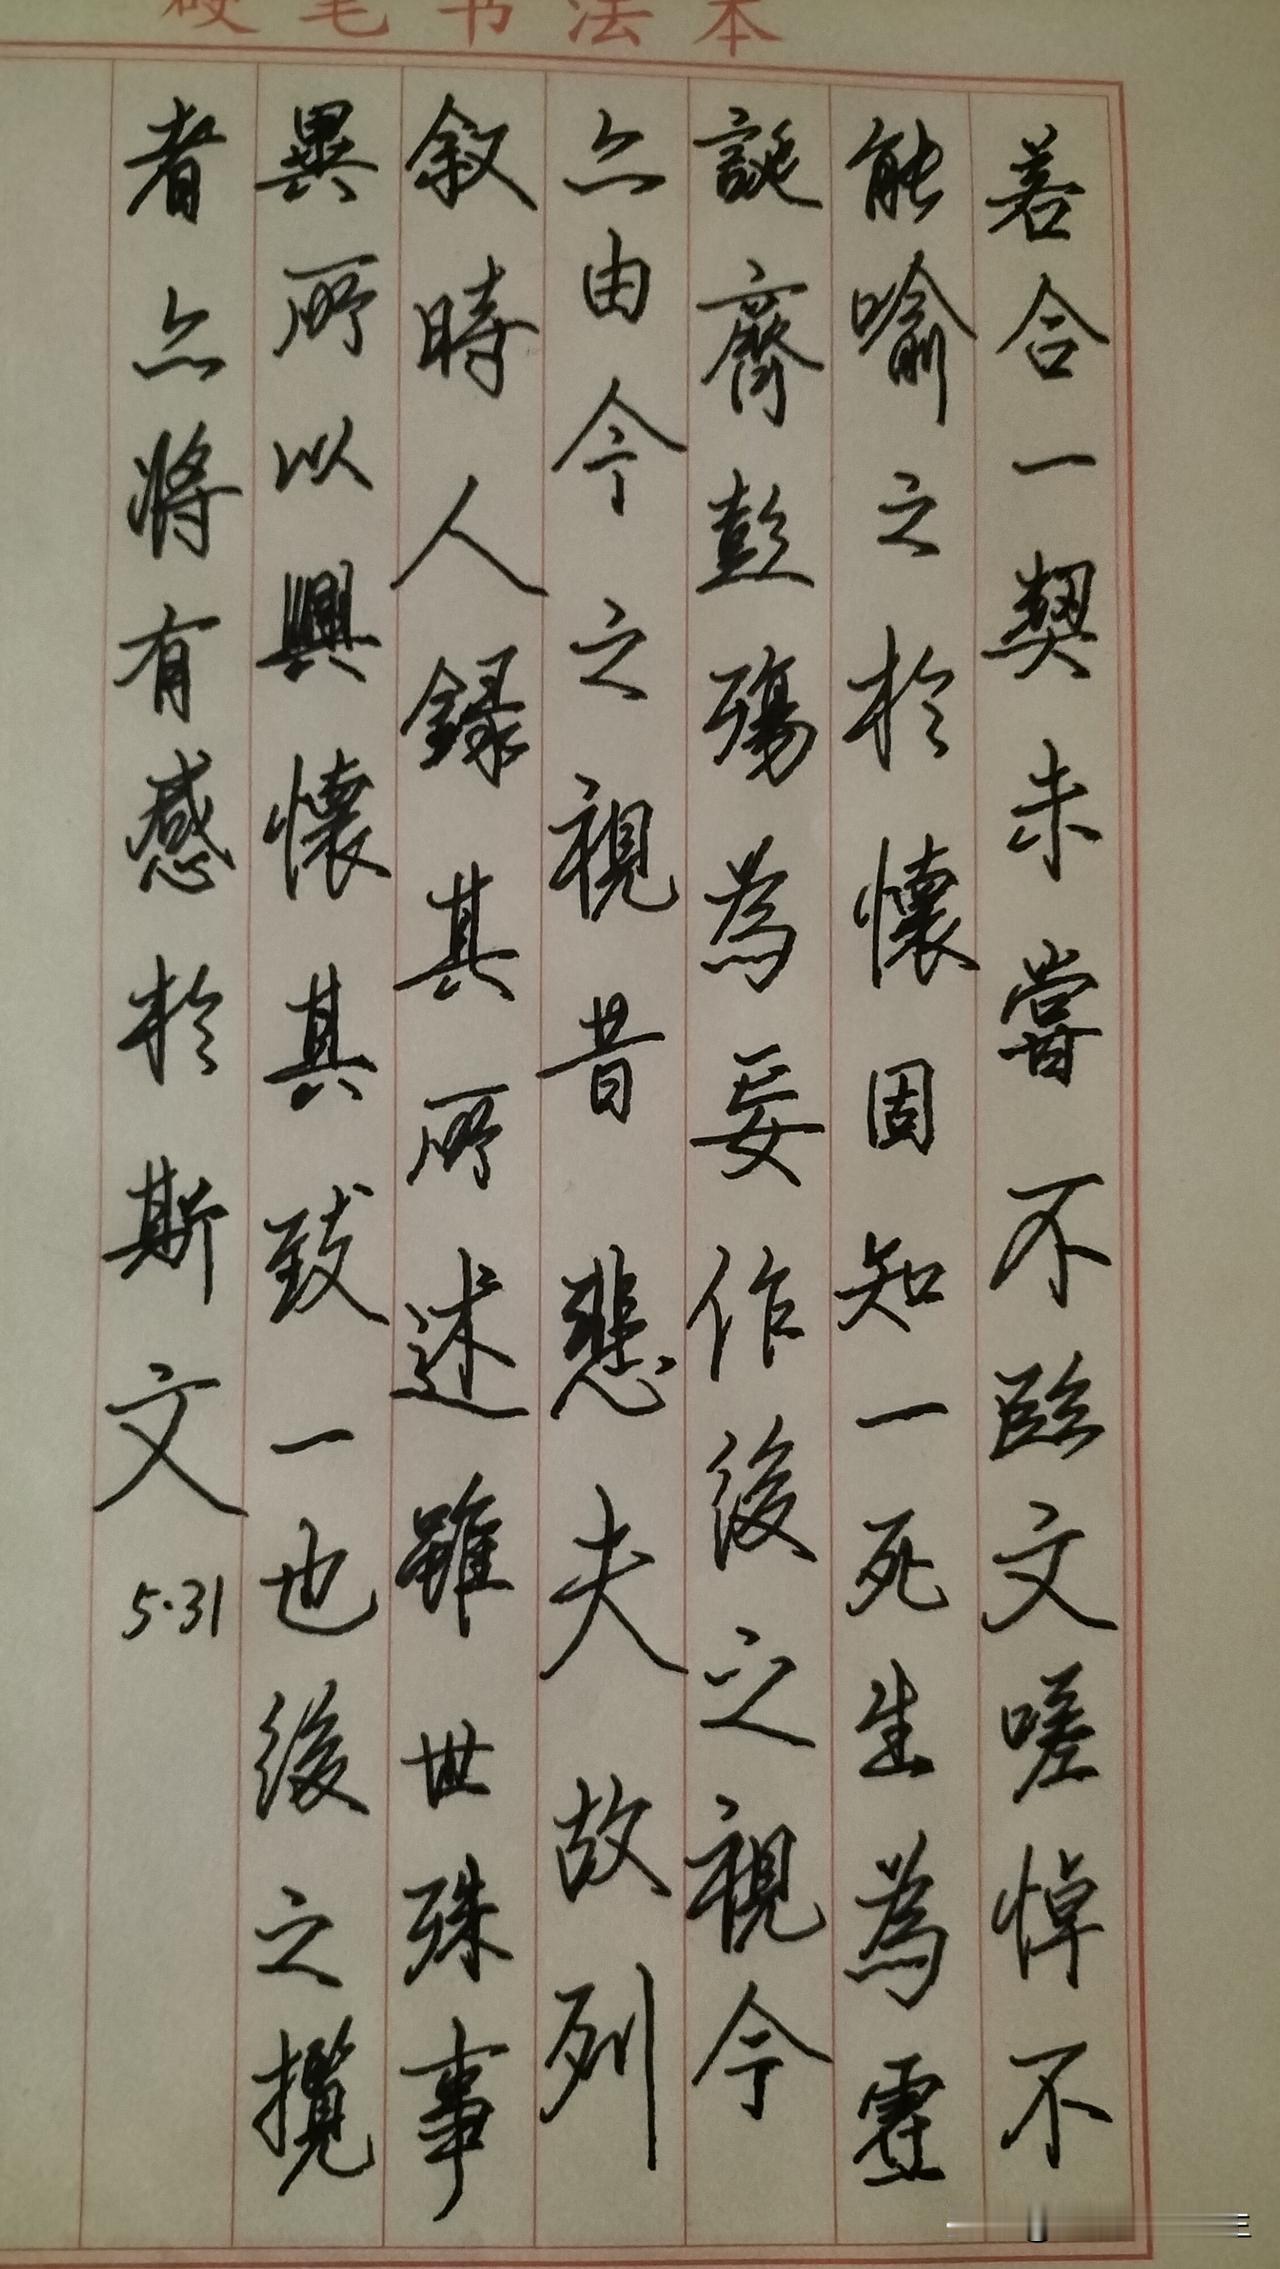 硬笔书法本
若合一契未嘗不臨文嗟悼不
能喻之於懷固知一死生為虛
誕齊彭殤為妄作後之視今
亦由今之視昔悲夫故列
敘時人錄其所述雖世殊事
異所以興懷其致一也後之攬
者亦將有感於斯文
5·31